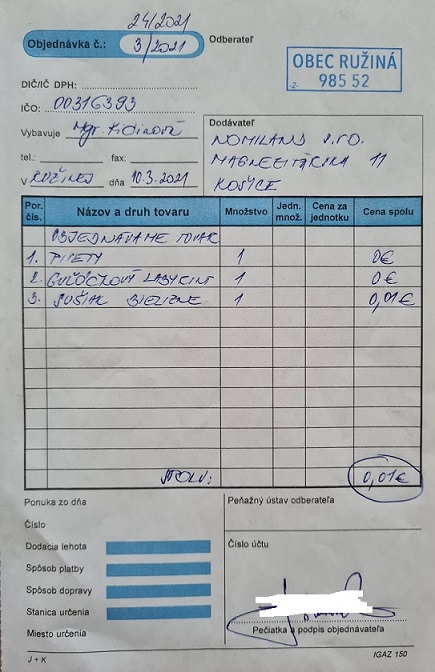 24/2021
Objednávka č.: 3/2021 Odberateľ
OBEC RUŽINÁ
985 52
-2-
DIČ/IČ DPH:
IČO: 00316393
Vybavuje Mgr.
Dodávateľ
NOMILAND s.r.o.
MAGNEZITÁRSKA 11
KOŠICE
tel.: fax:
V RUŽINEJ dňa 10.3.2021
Por. čís. Názov a druh tovaru Množstvo Jedn. množ. Cena za jednotku Cena spolu
OBJEDNÁVAME TOVAR
1. PIPETY 1 0€
2. GUĽÔČKOVÝ LABYRINT 1 0€
3. SUŠIAK BIELIZNE 1 0,01€
SPOLU: 0,01€
Ponuka zo dňa
Číslo
Dodacia lehota
Spôsob platby
Spôsob dopravy
Stanica určenia
Miesto určenia
Peňažný ústav odberateľa
Číslo účtu
Pečiatka a podpis objednávateľa
J + K
IGAZ 150